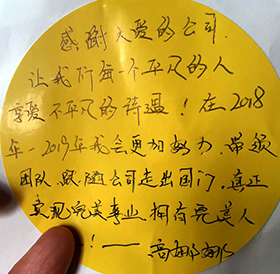 感谢大爱的公司.
让我们每一个平凡的人
享受不平凡的待遇！在2018
年一2019年我会更加努力.带领
团队.跟随公司走出国门,真正
实现完美事业.拥有完美人
！——高娜娜